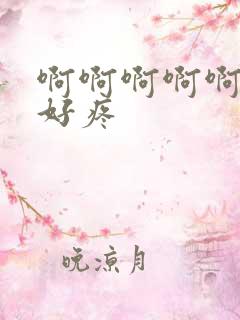 啊啊啊啊啊
好疼
晚凉月